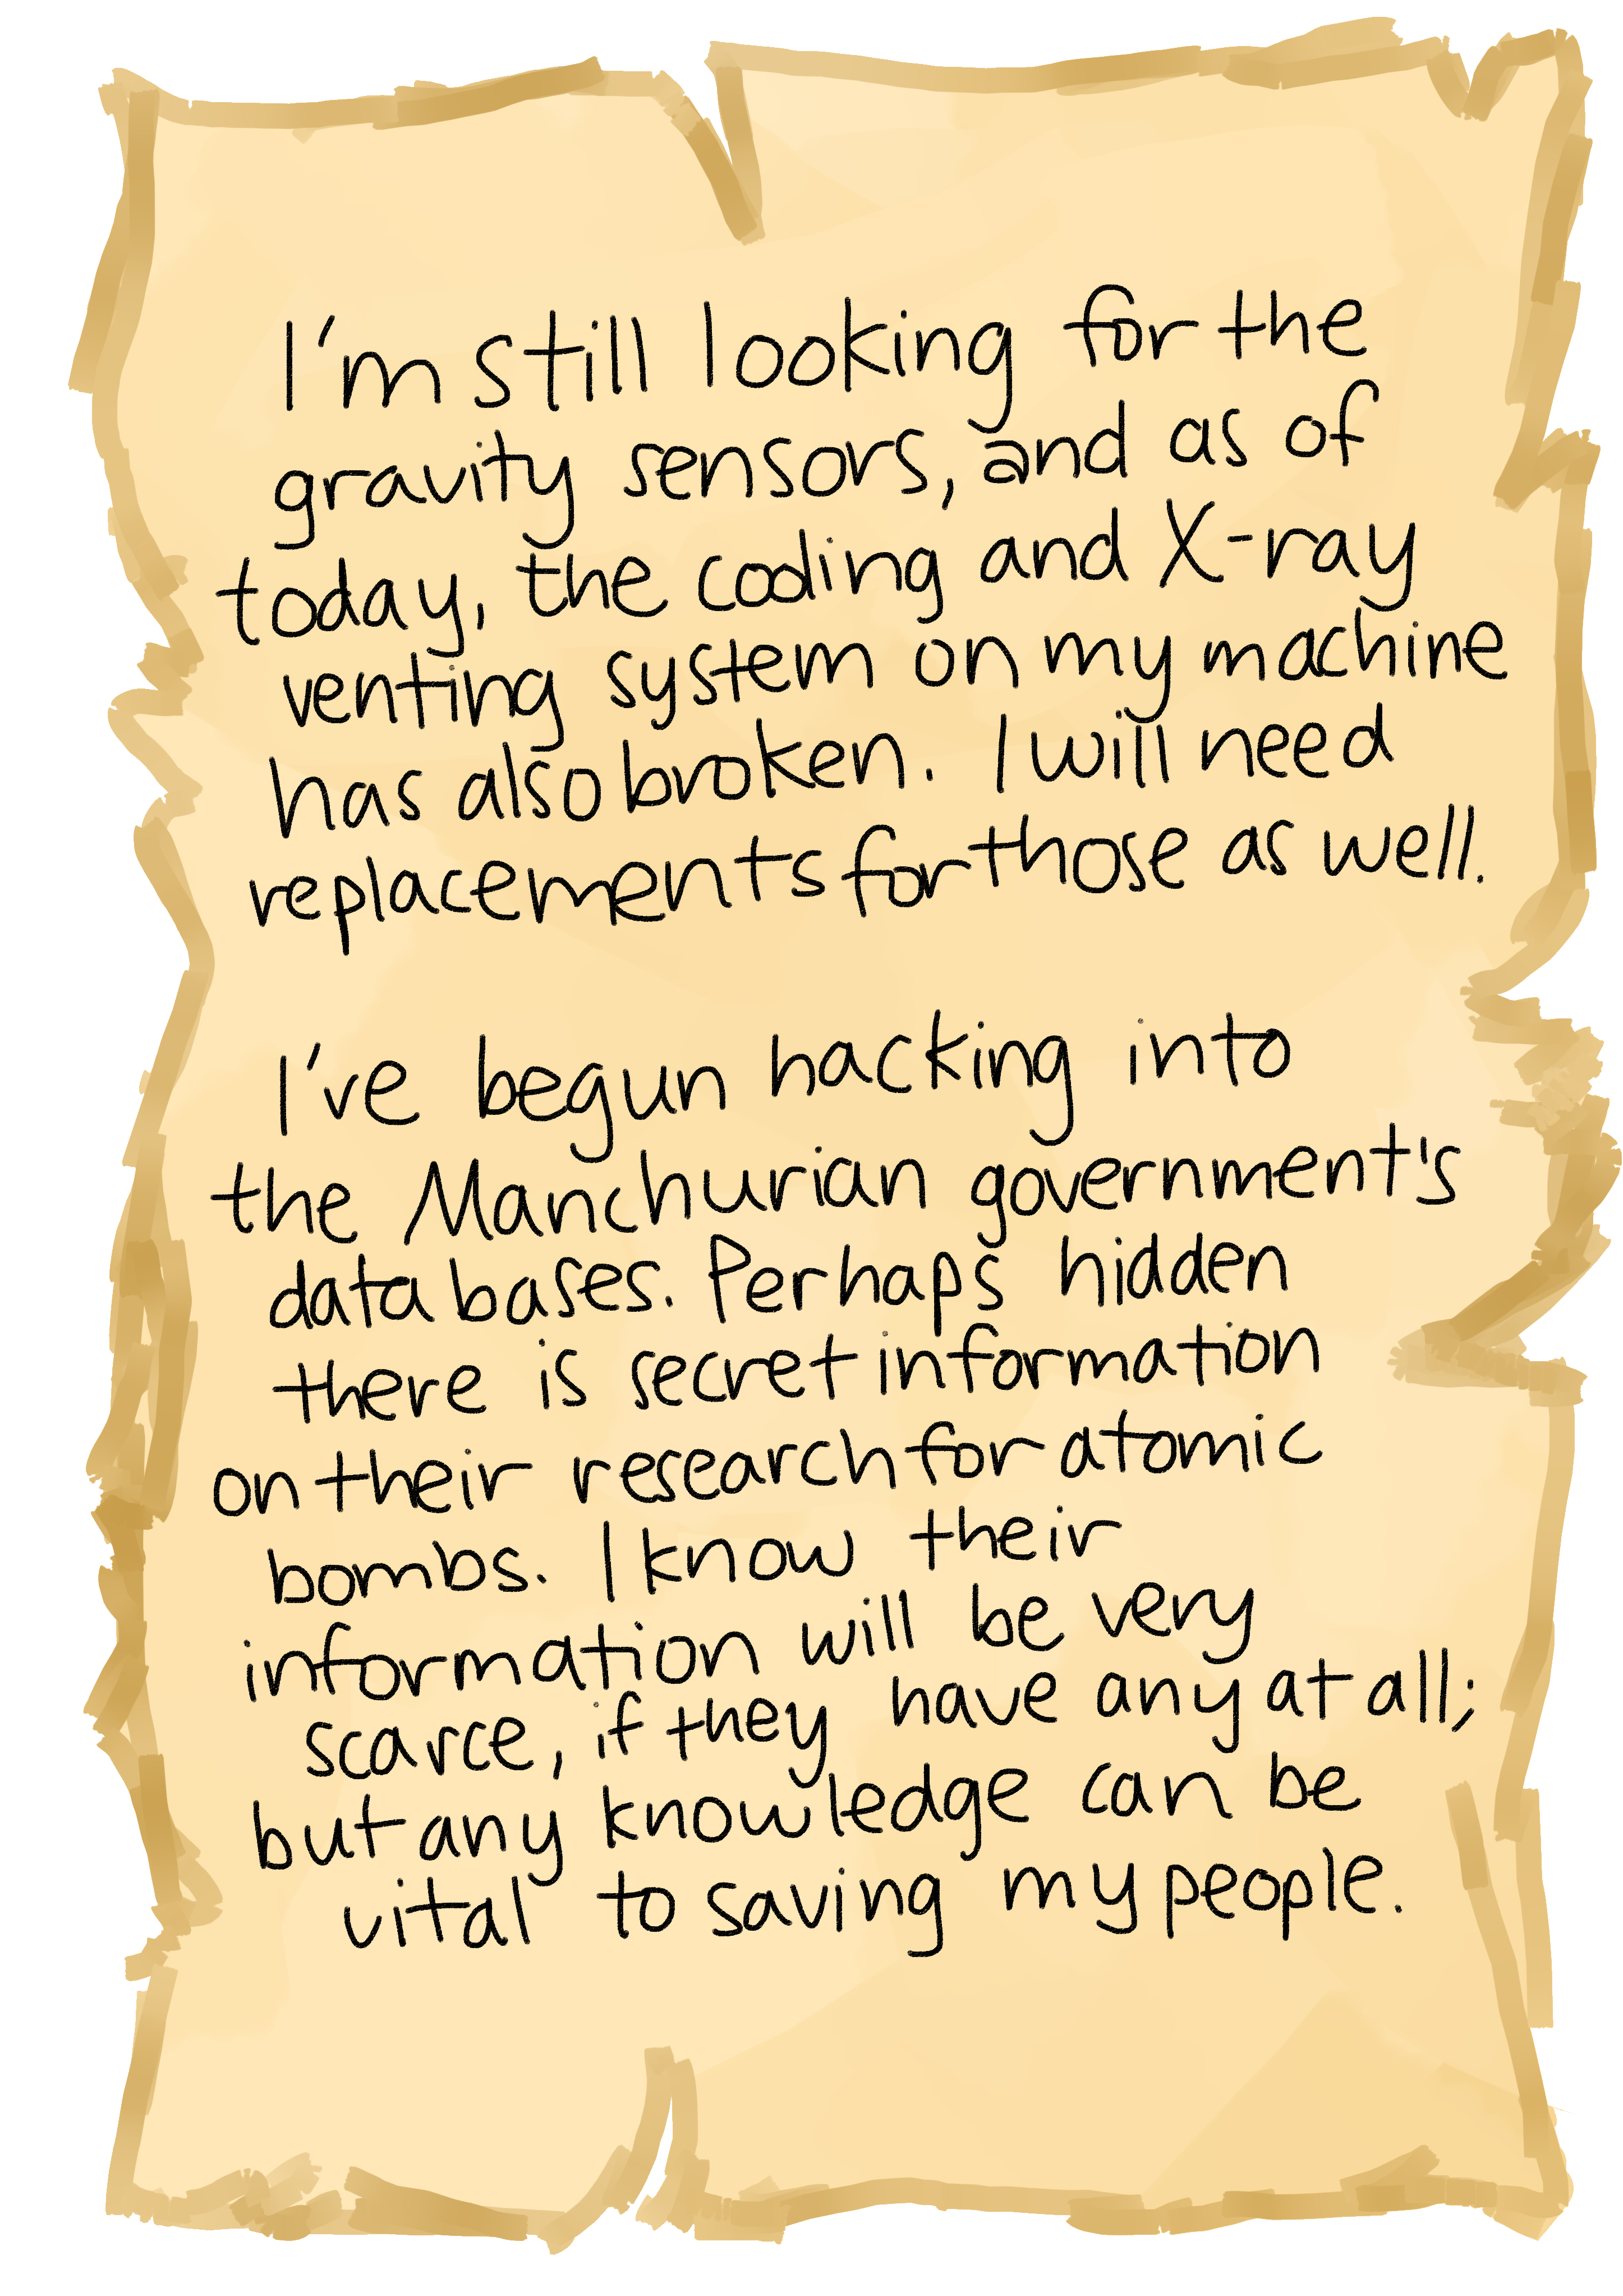 I'm still looking for the
gravity sensors, and as of
today, the coding and X-ray
venting system on my machine
has also broken. I will need
replacements for those as well.
I've begun hacking into
the Manchurian government's
databases. Perhaps hidden
there is secret information
on their research for atomic
bombs. I know their
information will be very
scarce, if they have any at all;
but any knowledge can be
vital to saving my people.